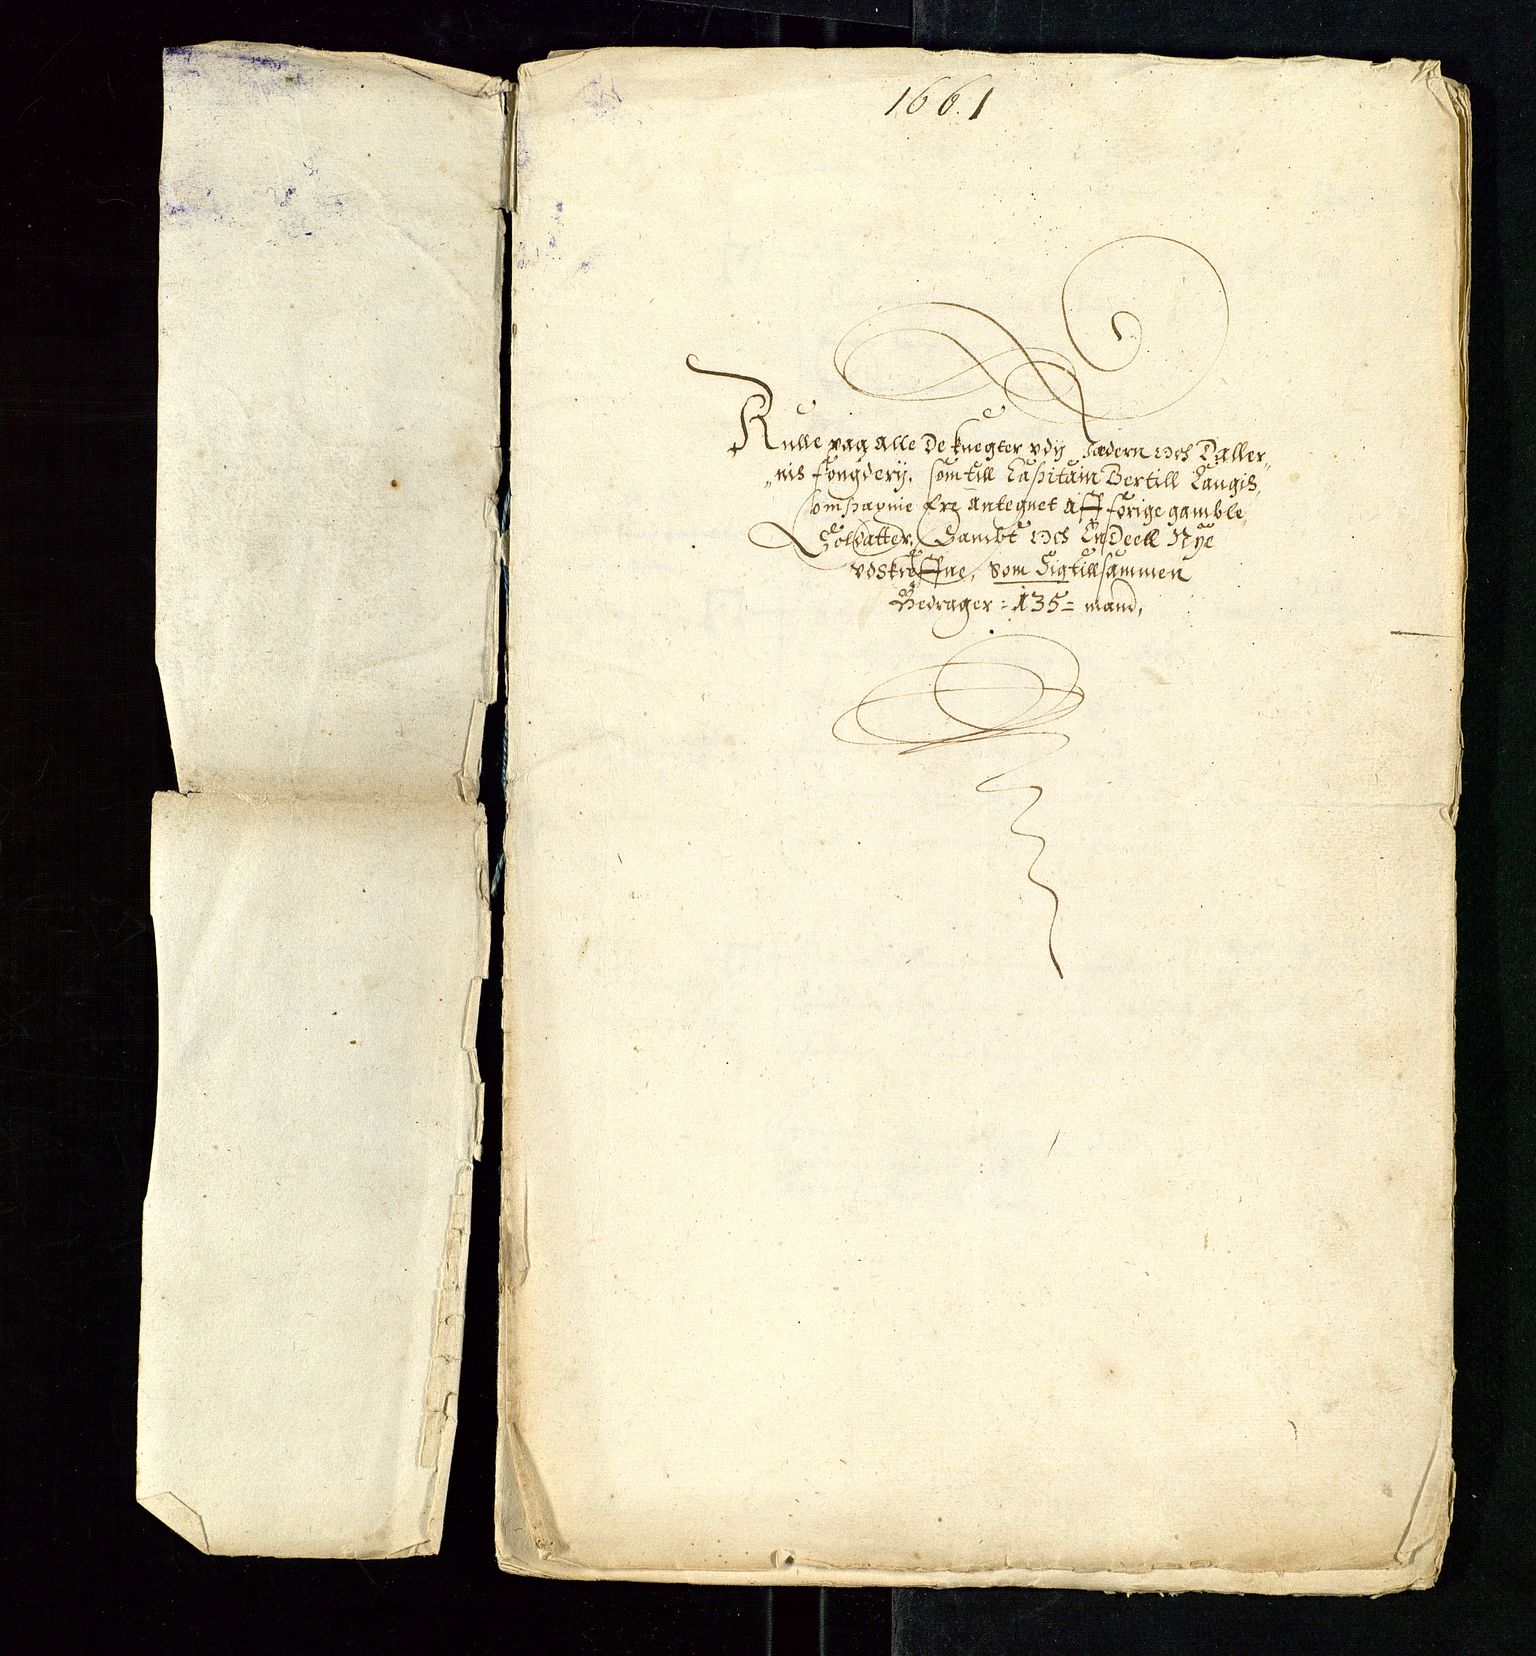 1661
Rulle paa alle De knegter udij Jædern och Daller„
„nis fougderij, som till Capitain Bertill Laugis,
Compagnie Ere Antegnet aff förige gamble„
Soldatter, Sambt och Endeell Nÿe
vdskreffne, Som Sig tillsammen
Bedrager = 135 = mand,